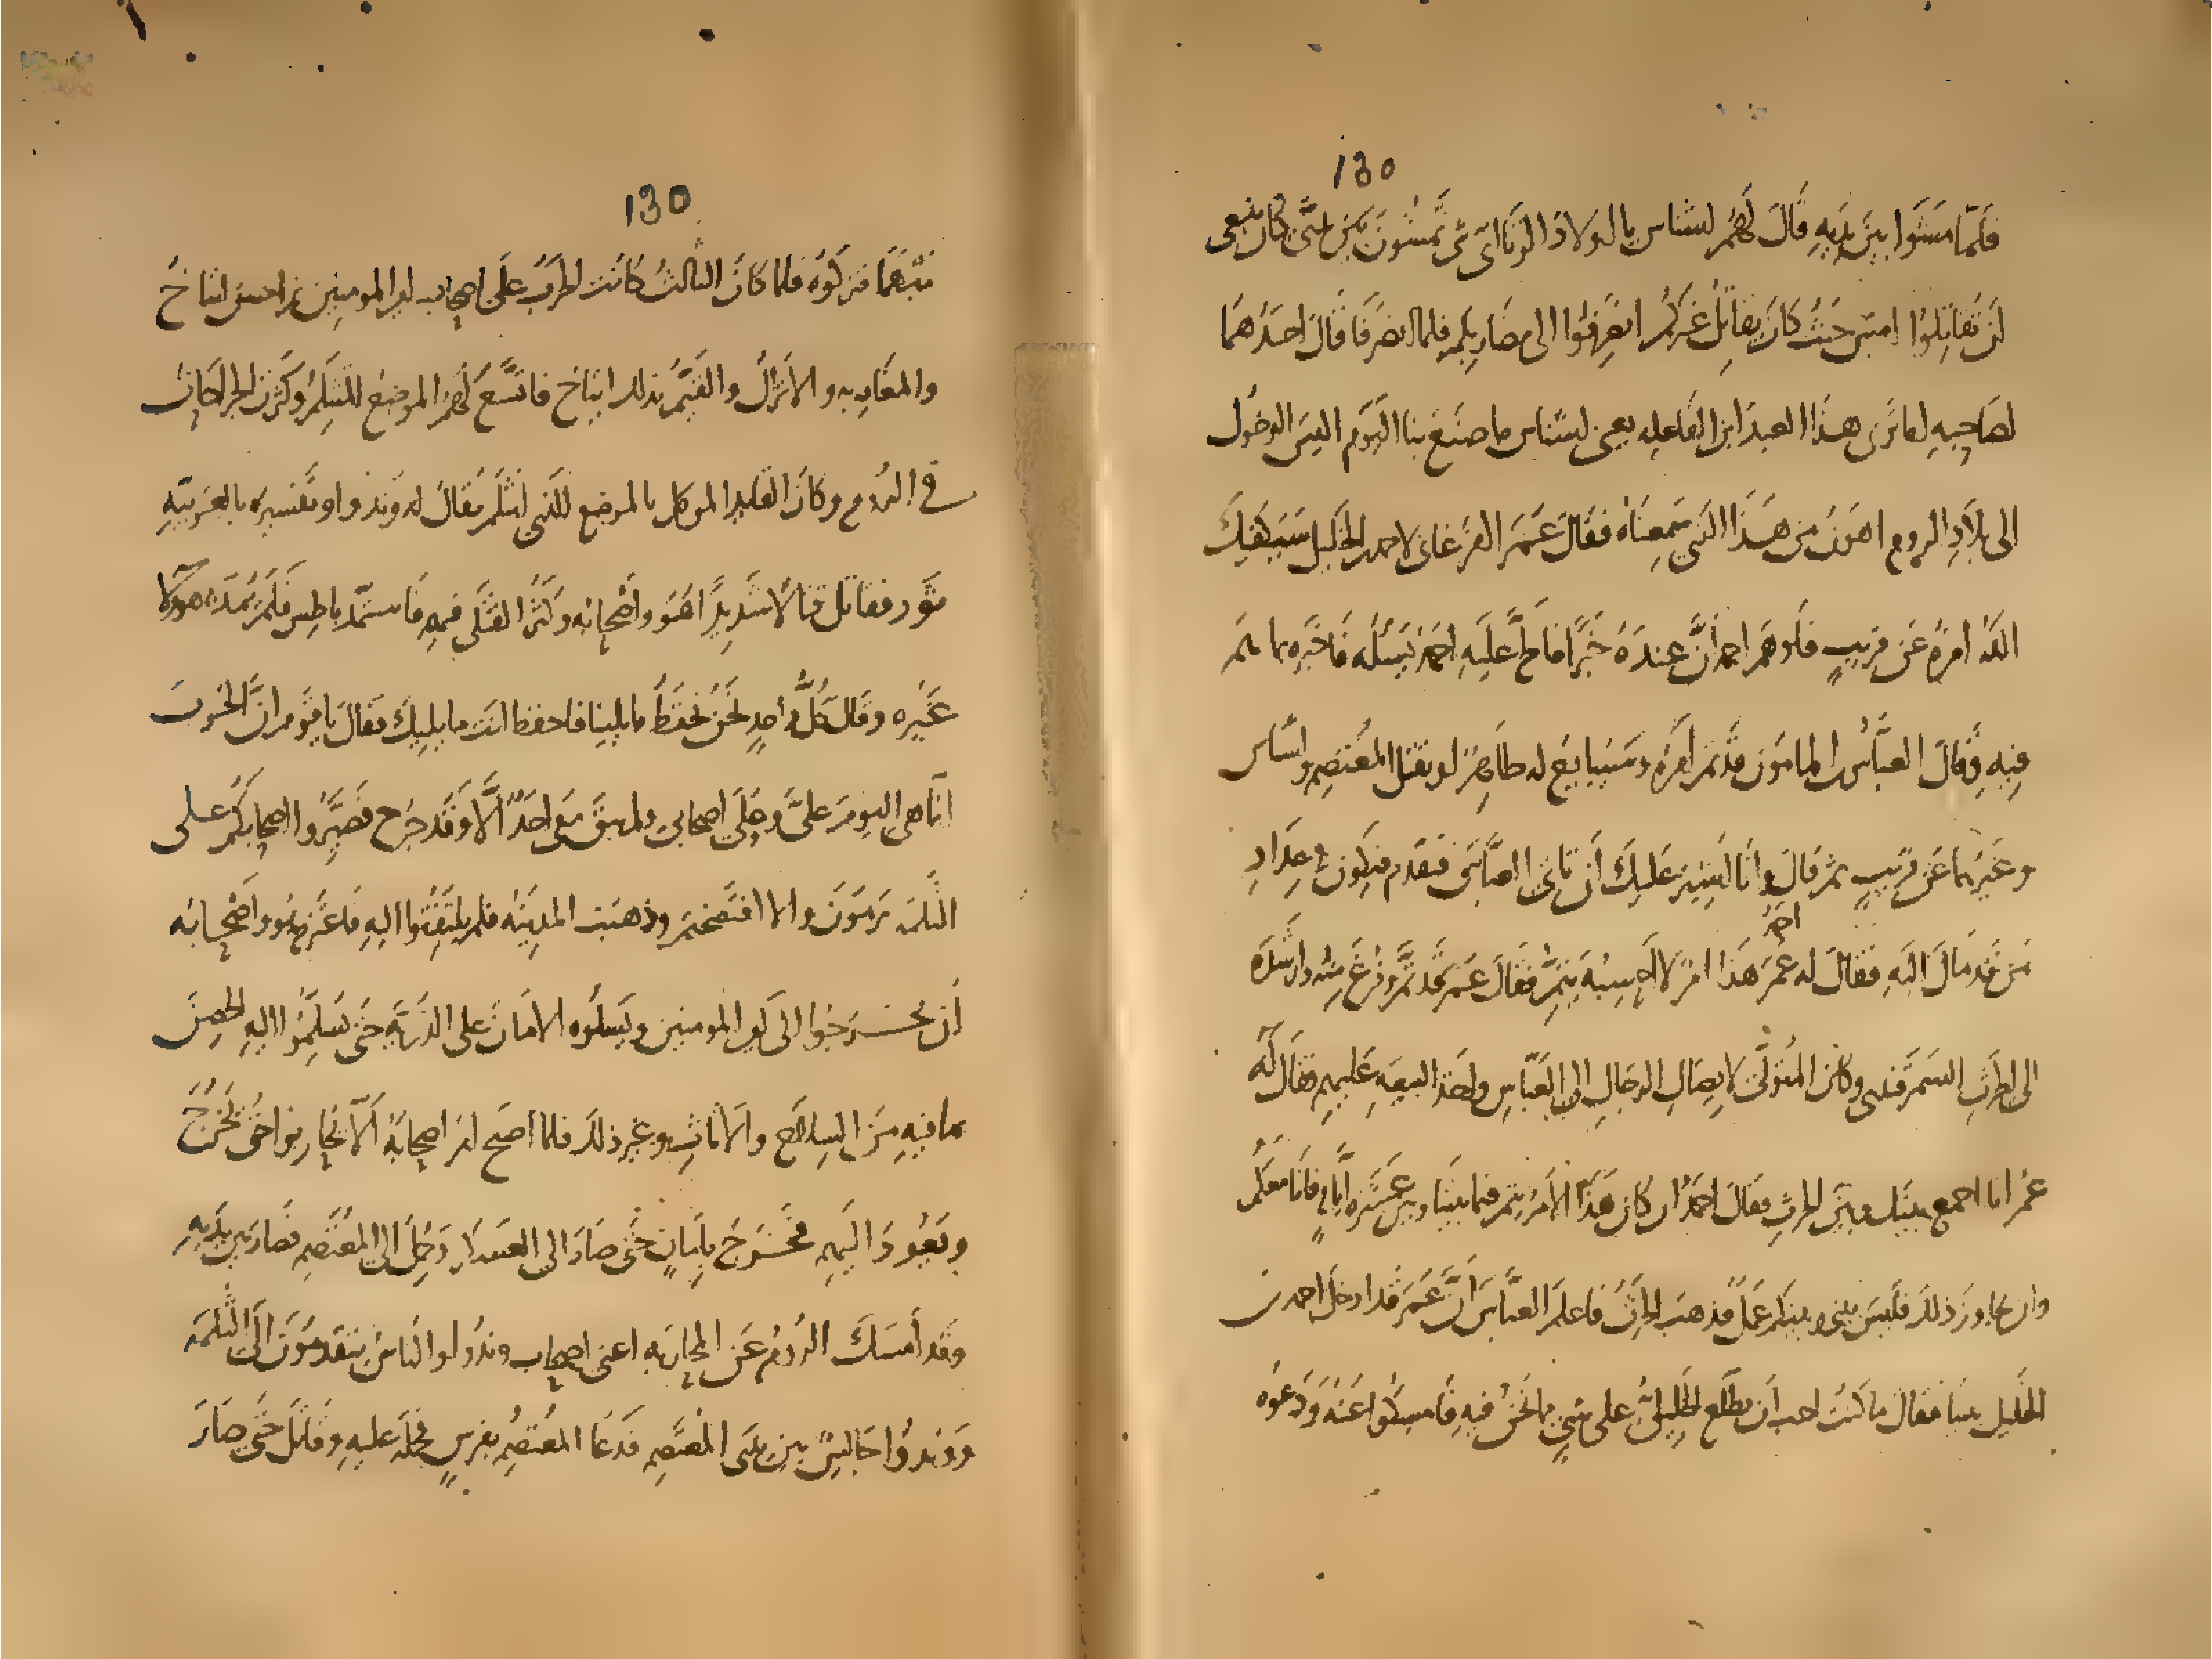 130
فلمّا مشوا بين يديه قال لهم اشناس يا اولاد الزنا اى شى تمشون بين يدىّ كان ينبغى
ان تقاتلوا امس حيث كان يقاتل غيركم انصرفوا الى مضاربكم فلما انصرفا قال احدهما
لصاحبه اما ترى هذا العبد ابن الفاعله يعنى اشناس ما صنع بنا اليوم اليس الدخول
الى بلاد الروم اهون من هذا الذى سمعناه فقال عمر الفرغانى لاحمد بن الخليل سيكفيك
الله امره عن قريب فاوهم احمد ان عنده خبرًا فالحّ عليه احمد يسئله فاخبره بما هم
فيه وقال العباس بن المامون قد تمّ امره وسنبايع له ظاهرًا ونقتل المعتصم واشناس
وغيرهما عن قريب ثم قال وانا اشير عليك ان تاتى العباس فتقدم فتكون فى عداد
من قد مال اليه فقال له احمد هذا امر لا احسبه يتمّ فقال عمر قد تمّ وفرغ منه وارشده
الى الحرث السمرقندى وكان المتولّى لايصال الرجال الى العباس واخذ البيعه عليهم فقال له
عمر انا اجمع بينك وبين الحرث فقال احمد ان كان هذا الامر يتم فيما بيننا وبين عشره ايام فانا معكم
وان جاوز ذلك فليس بينى وبينكم عمل فذهب الحرث فاعلم العباس ان عمر قد ادخل احمد بن
الخليل بيننا فقال ما كنت احب ان يطلع الخليلى على شى مما نحن فيه فامسكوا عنه ودعوه
130
بينهما فتركوه فلما كان الثالث كانت الحرب على اصحاب امير المومنين ثم احسن ايتاخ
والمغاربه والاتراك والقيّم بذلك ايتاخ فاتّسع لهم الموضع المنثلم وكثرت الجراحات
فى الروم وكان القايد الموكل بالموضع الذى انثلم يقال له وندوا وتفسيره بالعربيّه
ثور فقاتل قتالا شديدًا هو واصحابه وكثر القتلى فيهم فاستمدّ ياطس فلم يمده هو ولا
غيره وقال كلّ واحد نحن نحفظ ما يلينا فاحفظ انت ما يليك فقال يا قوم ان الحرب
انما هى اليوم علىّ وعلى اصحابى ولم يبق معى احدٌ الّا وقد جرح فصيّروا اصحابكم على
الثلمه يرمون والا افتضحتم وذهبت المدينه فلم يلتفتوا اليه فاعتزم هو واصحابه
ان يخرجوا الى امير المومنين ويسئلوه الامان على الذريّه حتى يسلموا اليه الحصن
بما فيه من السلاح والاثاث وغير ذلك فلما اصبح امر اصحابه الّا يحاربوا حتى يخرج
ويعود اليهم فخرج بامان حتّى صار الى العسكر ودخل الى المعتصم فصار بين يديه
وقد امسك الروم عن المحاربه اعنى اصحاب وندوا والناس يتقدمون الى الثلمه
ووندوا جالس بين يدى المعتصم فدعا المعتصم بفرس فحمله عليه وقاتل حتى صار